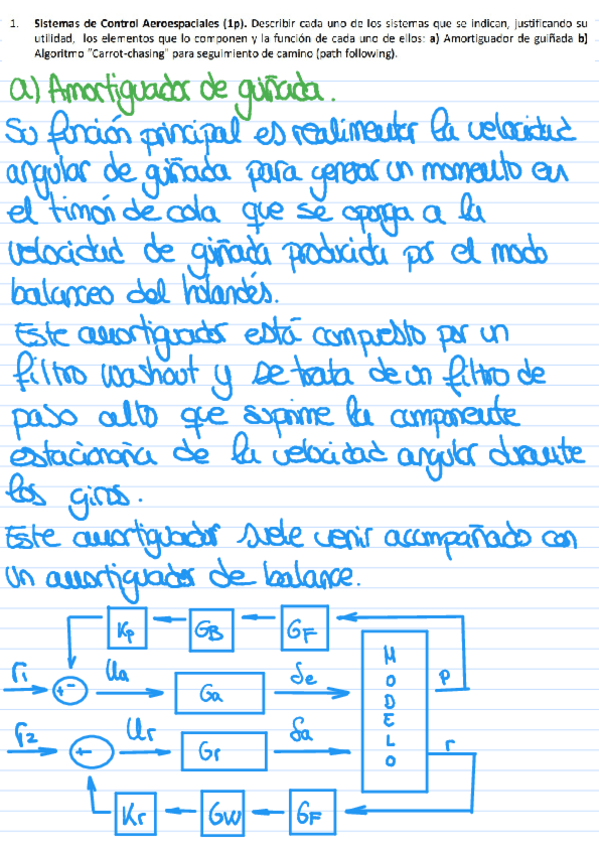 1. Sistemas de Control Aeroespaciales (1p). Describir cada uno de los sistemas que se indican, justificando su
utilidad, los elementos que lo componen y la función de cada uno de ellos: a) Amortiguador de guiñada b)
Algoritmo "Carrot-chasing" para seguimiento de camino (path following).
a) Amortiguador de guiñada.
Su función principal es realimentar la velocidad
angular de guiñada para generar un momento en
el timón de cola que se oponga a la
velocidad de guiñada producida por el modo
balanceo del holandés.
Este amortiguador está compuesto por un
filtro washout y se trata de un filtro de
paso alto que suprime la componente
estacionaria de la velocidad angular durante
los giros.
Este amortiguador suele venir acompañado con
un amortiguador de balance.
Kp GB GF
r1 + - Ua Ga δe MODELO p
r2 + - Ur Gr δa r
Kr GW GF